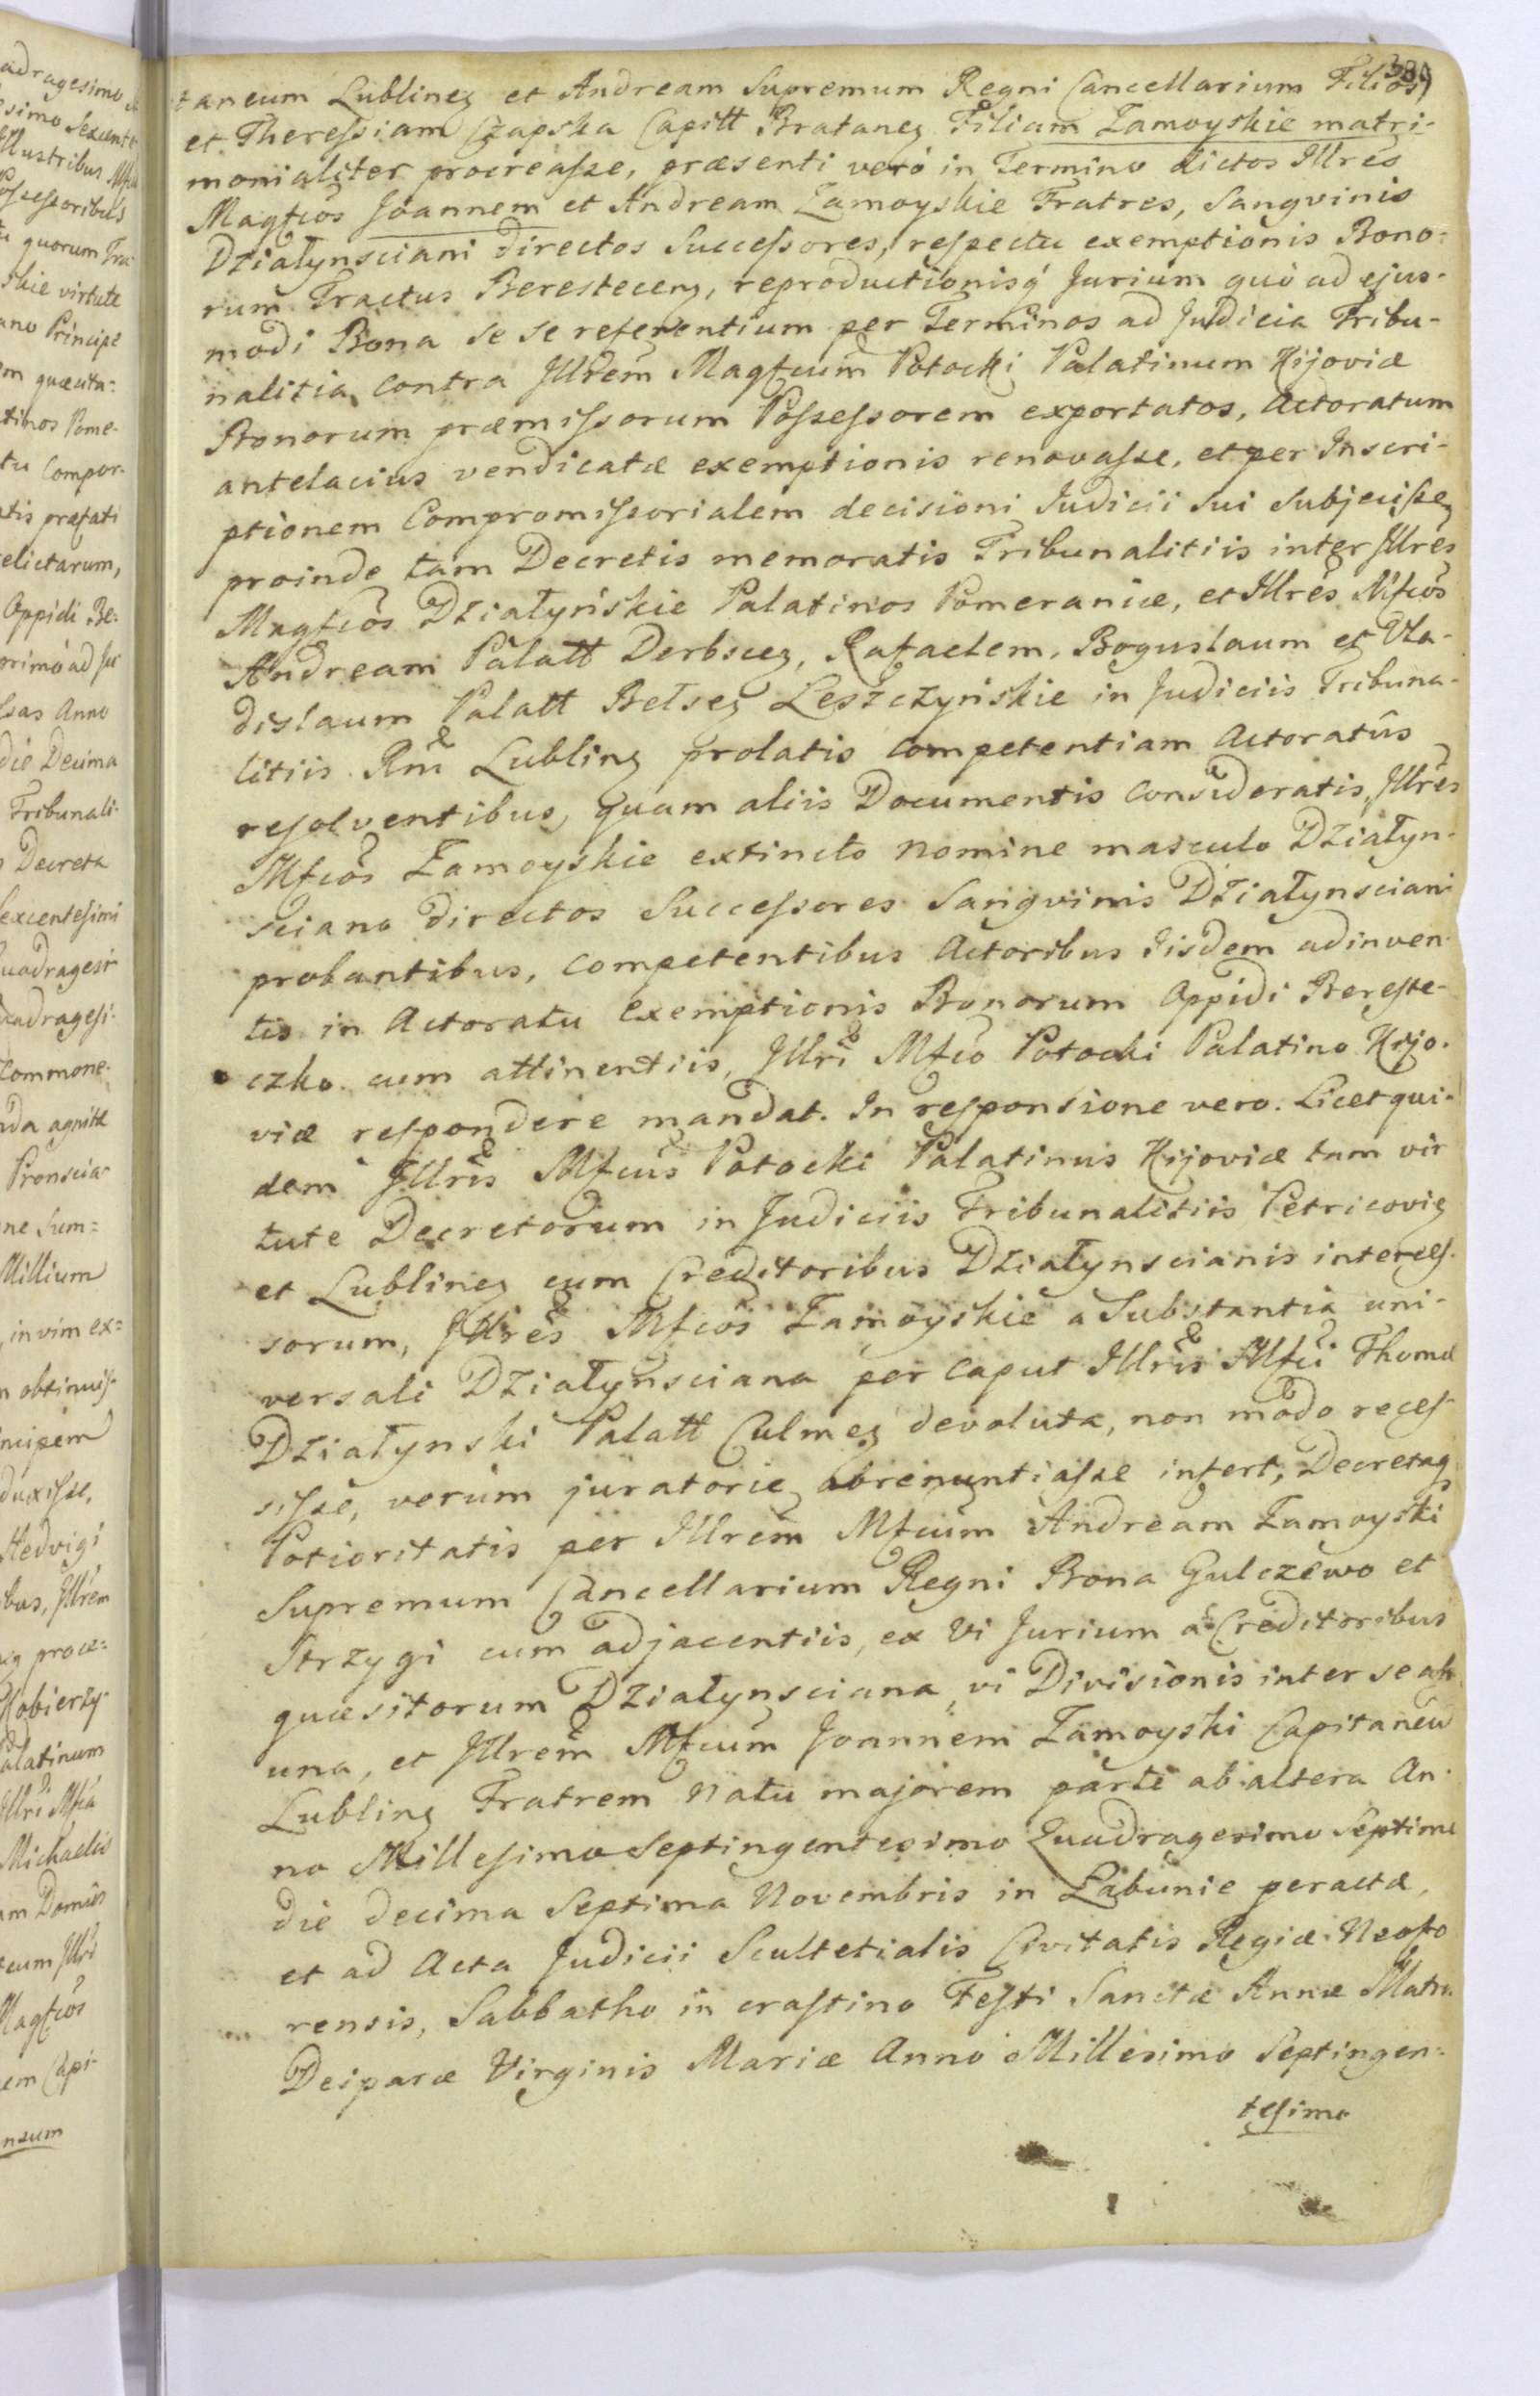 389
taneum Lublineӡ et Andream Supremum Regni Cancellarium Filios,
et Theressiam Czapska Capitt Brataneӡ Filiam Zamoyskie matri-
monialiter procreasse, præsenti veró in Termino dictos Illres
Magfcos Joannem et Andream Zamoyskie Fratres, Sangvinis
Działynsciani directos Successores, respectu exemptionis Bono-
rum Tractus Beresteceӡ, reproductionisq́ Jurium quó ad ejus-
modi Bona se se referentium per Terminos ad Judicia Tribu-
nalitia contra Illrem Magfcum Potocki Palatinum Kijoviæ
Bonorum præmissorum Possessorem exportatos, Actoratum
antelacius vendicatæ exemptionis renovasse, et per Inscri-
ptionem Compromissorialem decisioni Judicii sui Subjecisse,
proinde tam Decretis memoratis Tribunalitiis inter Illres
Magfcos Działyńskie Palatinos Pomeraniæ, et Illres Mfcos
Andream Palatt Derbsceӡ, Rafaelem, Boguslaum et Vla-
dislaum Palatt Belseӡ Leszczyńskie in Judiciis Tribuna-
litiis Rni Lublineӡ prolatis competentiam Actoratûs
resolventibus, quam aliis Documentis consideratis, Illres
Mfcos Zamoyskie extincto Nomine masculo Działyn-
sciano directos Successores Sangvinis Działynsciani
probantibus, competentibus Actoribus iisdem adinven-
tis in Actoratu Exemptionis Bonorum Oppidi Bereste-
czko cum attinentiis, Illri Mfco Potocki Palatino Kijo-
viæ respondere mandat. In responsione vero. Licet qui-
dem Illris Mfcus Potocki Palatinus Kijoviæ tam vir
tute Decretorum in Judiciis Tribunalitiis Petricovieӡ
et Lublineӡ cum Creditoribus Działynscianis interces-
sorum, Illres Mfcos Zamoyskie a Substantia uni-
versali Działynsciana per caput Illris Mfci Thomæ
Działynski Palatt Culmeӡ devoluta, non modo reces-
sisse, verum juratorie abrenuntiasse infert, Decretaq́
Potioritatis per Illrem Mfcum Andream Zamoyski
Supremum Cancellarium Regni Bona Gulczewo et
Strzygi cum adjacentiis, ex vi Jurium a Creditoribus
quæsitorum Działynsciana, vi Divisionis inter se ab
una, et Illrem Mfcum Joannem Zamoyski Capitaneu
Lublineӡ Fratrem Natu majorem parte ab altera An-
no Millesimo Septingentesimo Quadragesimo Septimo
die decima Septima Novembris in Łabunie peractæ,
et ad Acta Judicii Scultetialis Civitatis Regiæ Neofo
rensis, Sabbatho in crastino Festi Sanctæ Annæ Matris
Deiparæ Virginis Mariæ Anno Millesimo Septingen-
tesimo